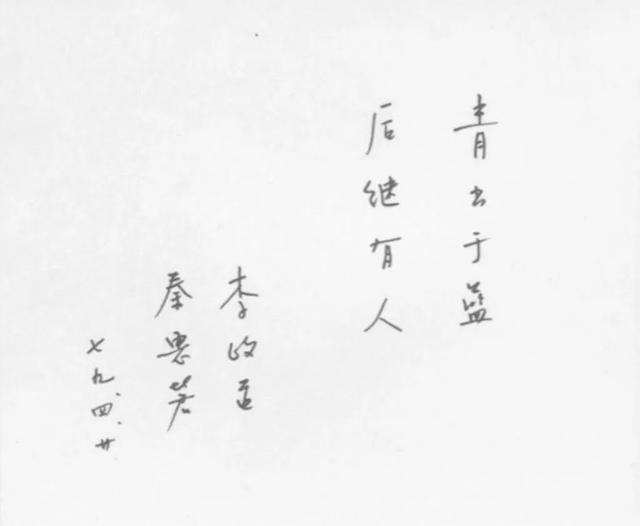 青出于蓝
后继有人
李政道
秦惠䇹
七九.四.廿.